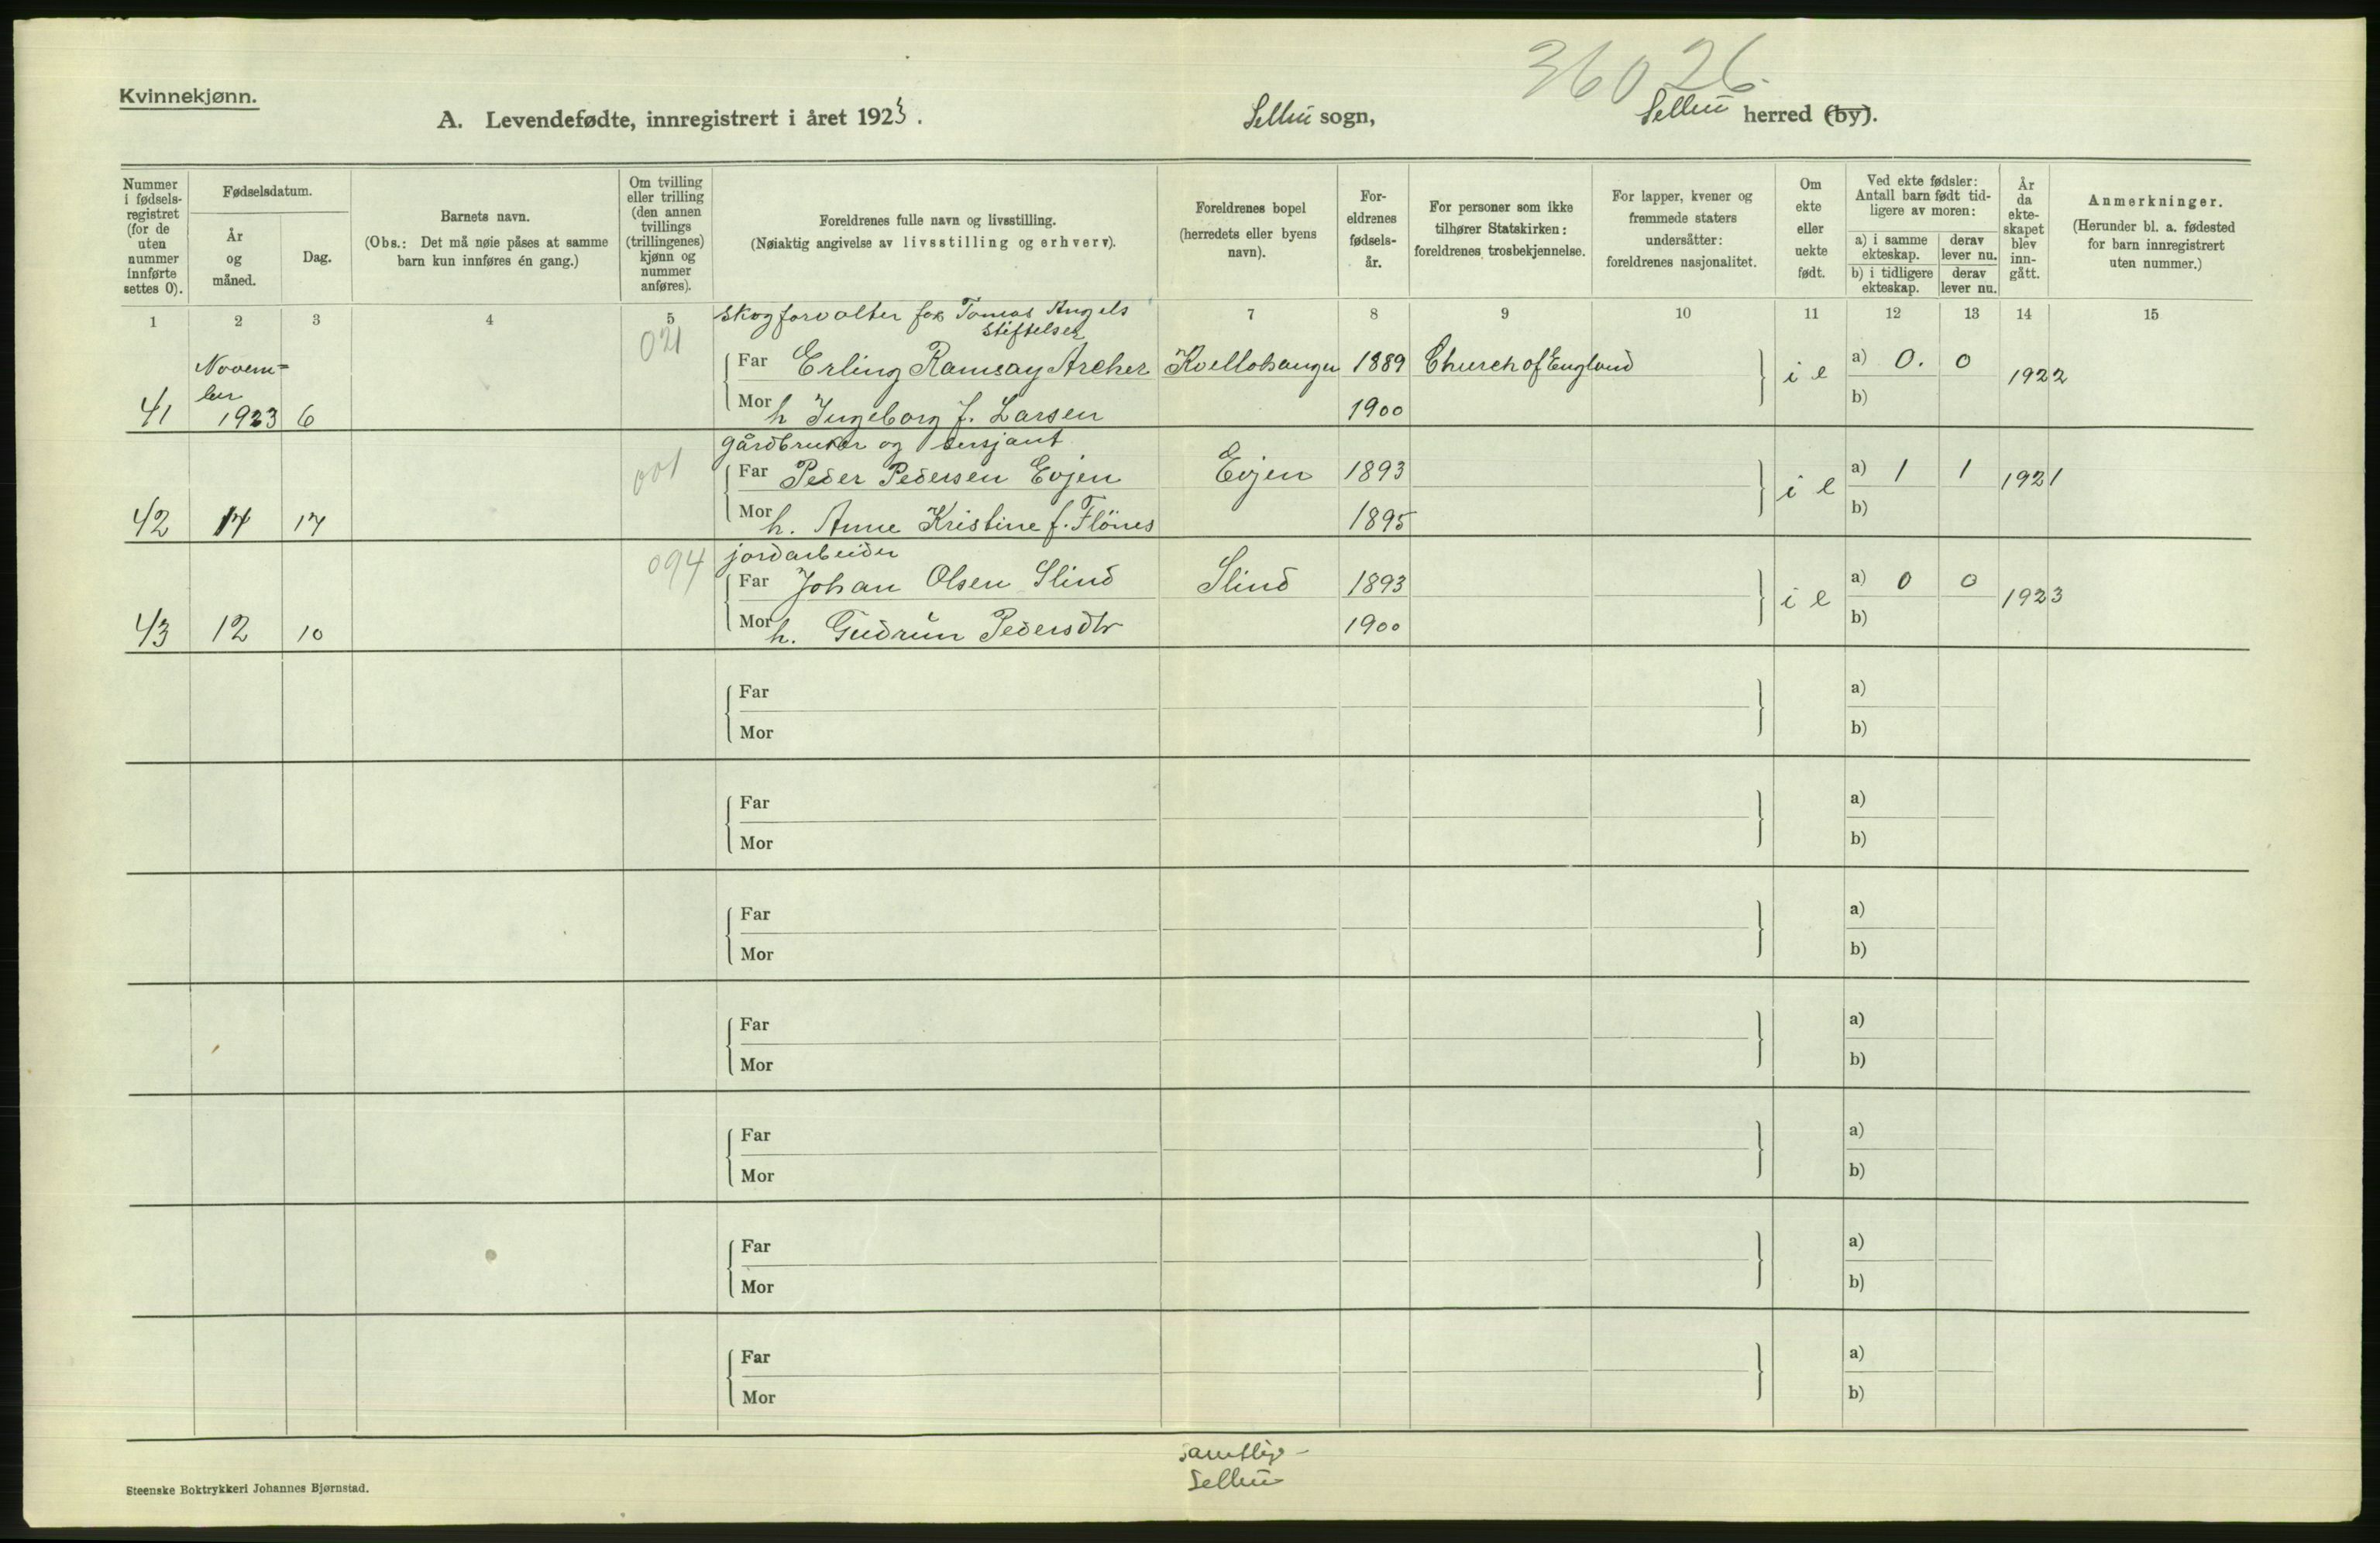 36026.
Kvinnekjønn.
A. Levendefødte, innregistrert i året 1923. Selbu sogn, Selbu herred (by).
Nummer i fødselsregistret (for de uten nummer innførte settes 0).
Fødselsdatum.
År og måned.
Dag.
Barnets navn.
(Obs.: Det må nøie påses at samme barn kun innføres én gang.)
Om tvilling eller trilling (den annen tvillings (trillingenes) kjønn og nummer anføres).
Foreldrenes fulle navn og livsstilling.
(Nøiaktig angivelse av livsstilling og erhverv).
Foreldrenes bopel (herredets eller byens navn).
Foreldrenes fødselsår.
For personer som ikke tilhører Statskirken: foreldrenes trosbekjennelse.
For lapper, kvener og fremmede staters undersåtter: foreldrenes nasjonalitet.
Om ekte eller uekte født.
Ved ekte fødsler: Antall barn født tidligere av moren:
a) i samme ekteskap. derav lever nu.
b) i tidligere ekteskap. derav lever nu.
År da ekteskapet blev inngått.
Anmerkninger.
(Herunder bl. a. fødested for barn innregistrert uten nummer.)
1 2 3 4 5 7 8 9 10 11 12 13 14 15
skogforvalter for Tomas Angels
Stiftelser
021
November
Far Erling Ramsay Archer 1889 Church of England i e a) 0. 0 1922
41 1923 6 Mor h Ingeborg f. Larsen 1900 b)
gårdbruker og sersjant
001
Far Peder Pedersen Evjen Evjen 1893 i e a) 1 1 1921
42 17 Mor h. Anne Kristine f. Flönes 1895 b)
094 jordarbeider
Far Johan Olsen Slind Slind 1893 i e a) 0 0 1923
43 12 10 Mor h. Gudrun Pedersdtr 1900 b)
Far a)
Mor b)
Far a)
Mor b)
Far a)
Mor b)
Far a)
Mor b)
Far a)
Mor b)
Far a)
Mor b)
Far a)
Mor b)
samtlige
Selbu
Steenske Boktrykkeri Johannes Bjørnstad.